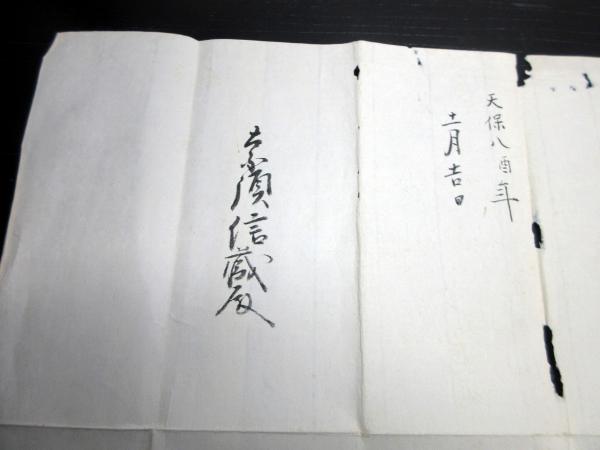 天保八酉年
十一月吉日
信蔵殿